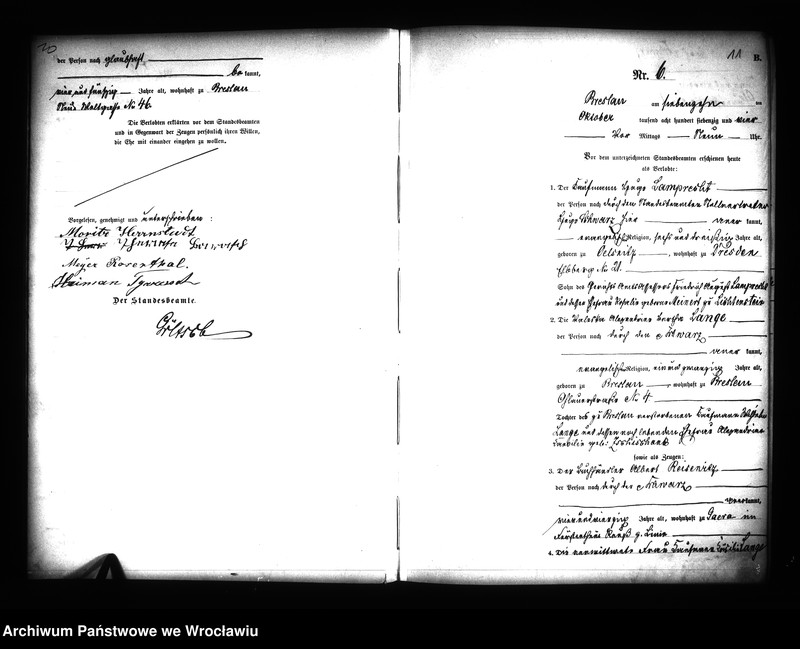 10
der Person nach glaubhaft
bekannt,
vier und fünfzig Jahre alt, wohnhaft zu Breslau
Neue Weltgasse No 46.
Die Verlobten erklärten vor dem Standesbeamten
und in Gegenwart der Zeugen persönlich ihren Willen,
die Ehe mit einander eingehen zu wollen.
Vorgelesen, genehmigt und unterschrieben:
Moritz Herrnstadt
Meyer Rosenthal.
Heiman
Der Standesbeamte.
11
B.
Nr. 6.
Breslau am siebenzehn ten
Oktober tausend acht hundert siebenzig und vier
Vor Mittags Neun Uhr.
Vor dem unterzeichneten Standesbeamten erschienen heute
als Verlobte:
1. Der Kaufmann Hugo Lamprecht
der Person nach durch den Standesbeamten Stellvertreter
Hugo Schwarz hier kannt,
evangelischer Religion, sechs und dreißig Jahre alt,
geboren zu Oelsnitz, wohnhaft zu Dresden
Elbberg No 21.
Sohn des Friedrich August Lamprecht
und dessen Ehefrau geborene Meinert zu Lichtenstein
2. Die Valeska Alexandrine Bertha Lange
der Person nach durch den Schwarz
kannt,
evangelischer Religion, ein und zwanzig Jahre alt,
geboren zu Breslau, wohnhaft zu Breslau
Ohlauerstraße No 4
Tochter des zu Breslau verstorbenen Kaufmann Wilhelm
Lange und dessen noch lebenden Ehefrau Alexandrine
sowie als Zeugen:
3. Der Buchhändler Albert Reisewitz
der Person nach durch den Schwarz
kannt,
vierundvierzig Jahre alt, wohnhaft zu Gera im
Fürstenthum Reuß j. Linie
4. Die verwittwete Frau Kaufmann Lange
Archiwum Państwowe we Wrocławiu